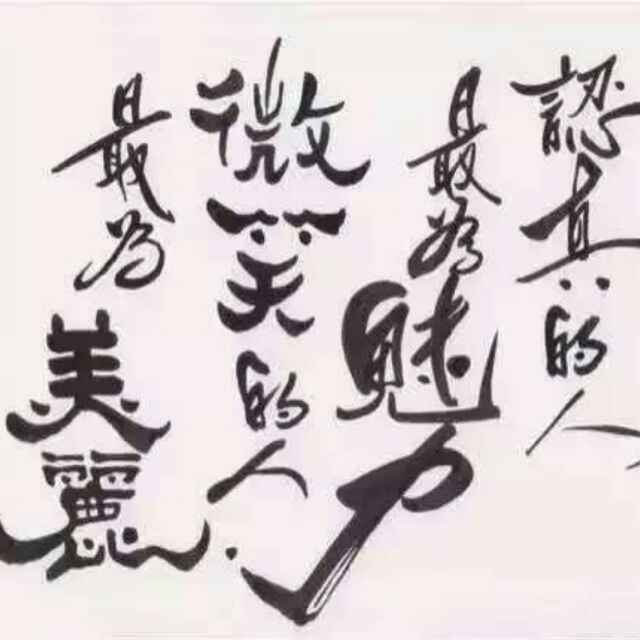 認真的人
最為魅力
微笑的人
最為美麗